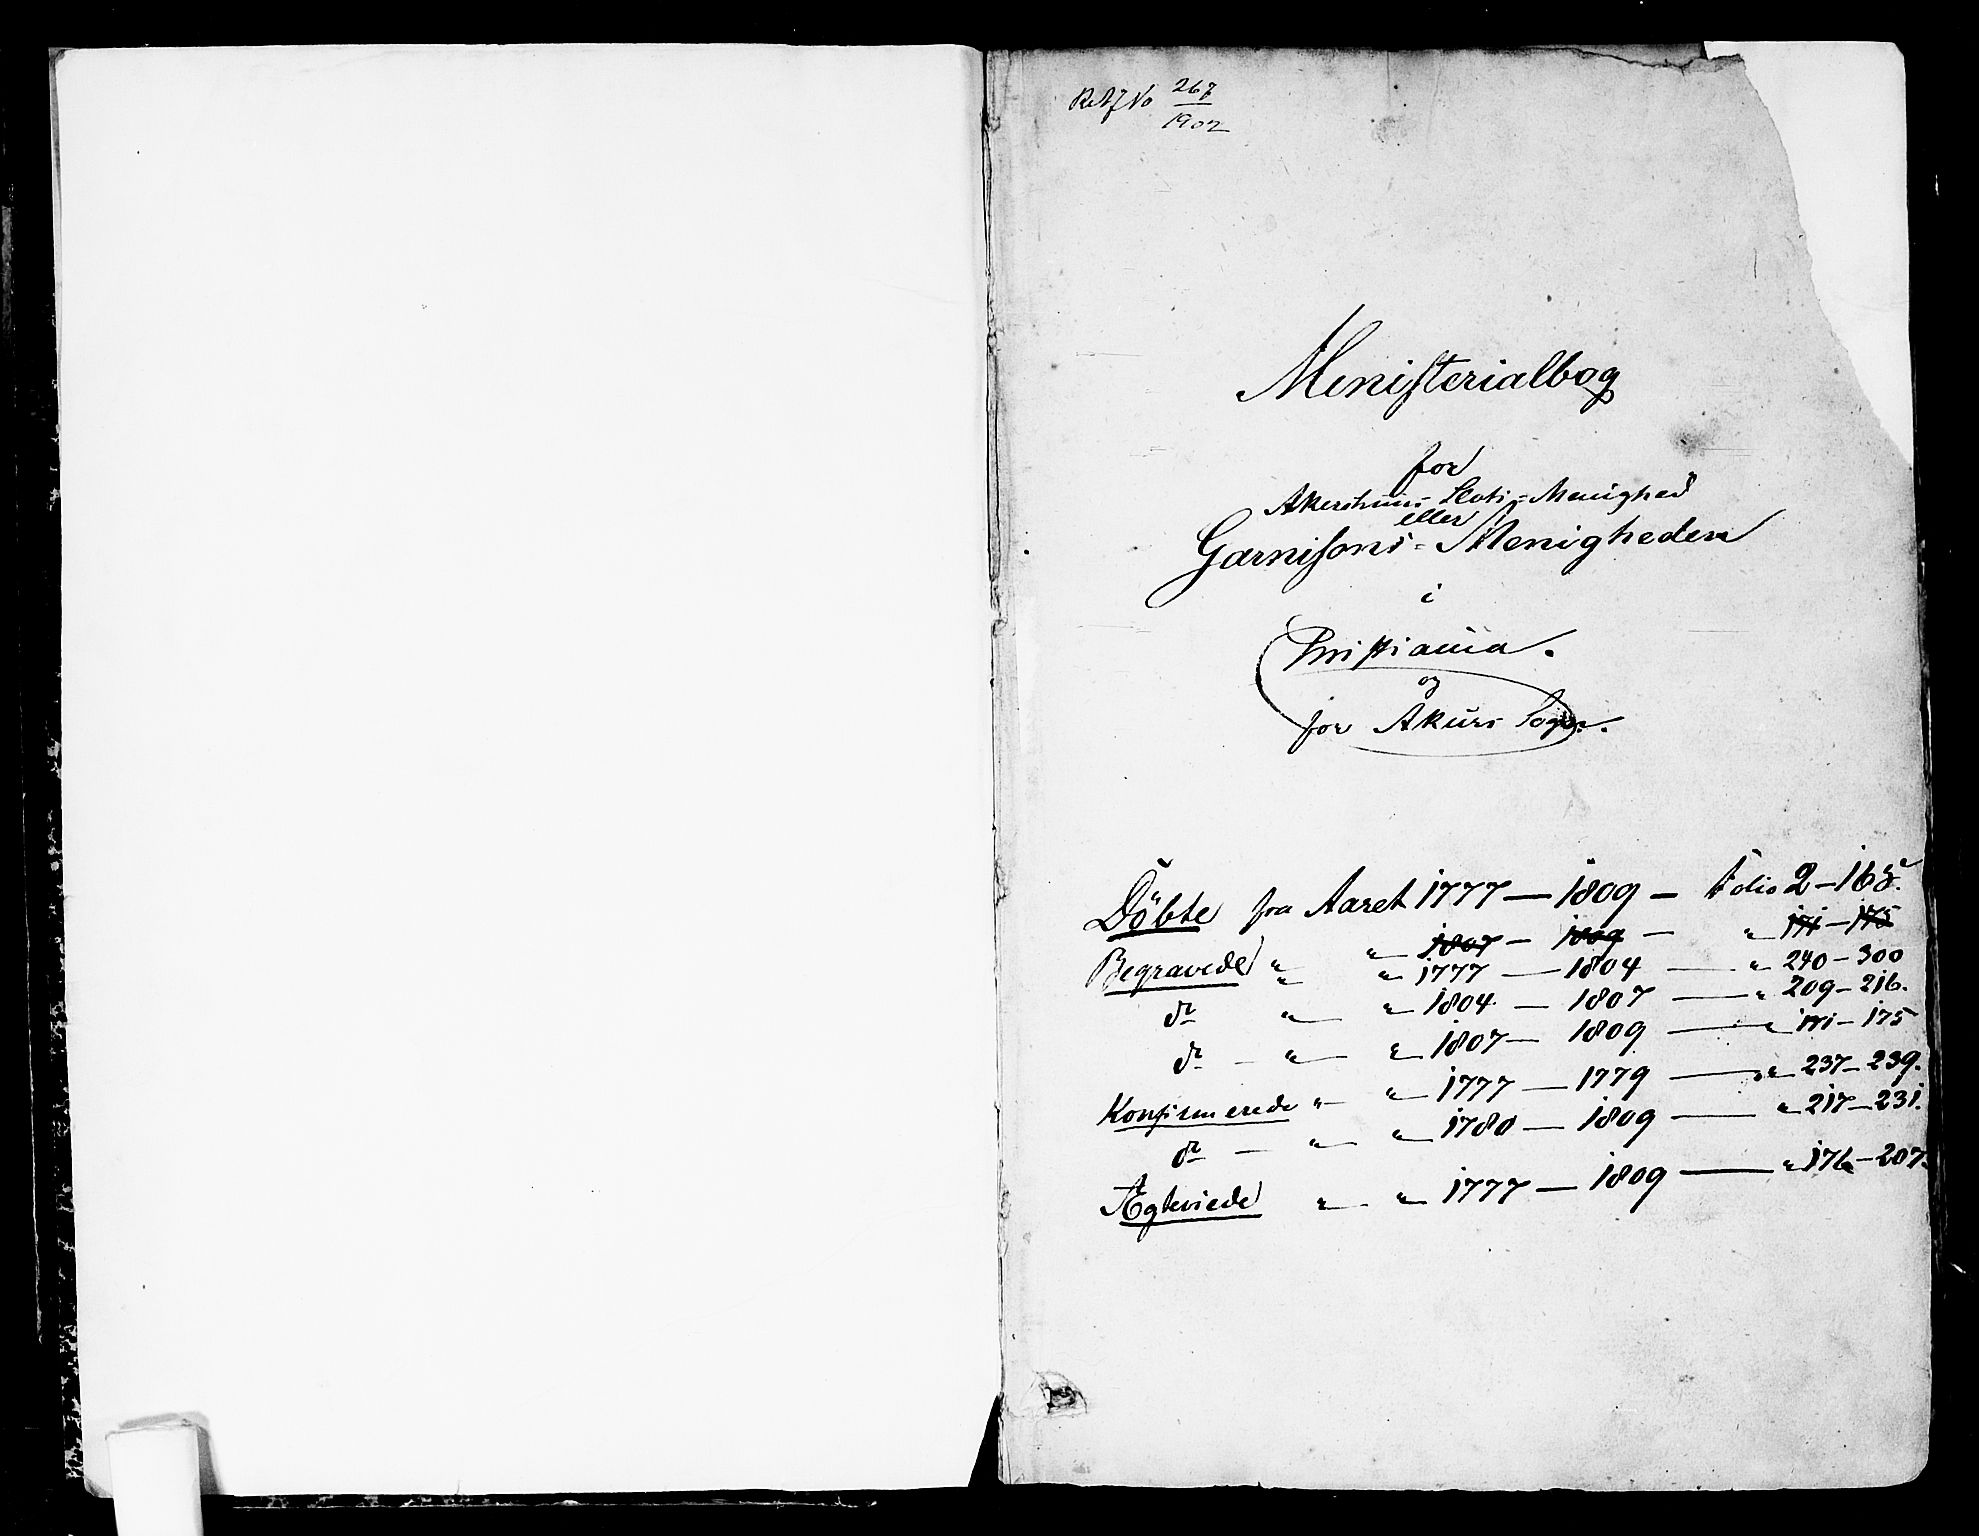 267
1902
Ministerialbog
for
Akershuus Slots-Menighed
eller
Garnisons-Menigheden
i
Christiania.
og
for Akers Sogn.
Döbte fra Aaret 1777 — 1809 — Folio 2 — 165.
Begravede " " 1807 — 1809 — " 171 — 175
" " 1777 — 1804 — " 240 — 300
do " " 1804 — 1807 — " 209 — 216.
do — " " 1807 — 1809 — " 171 — 175
Konfirmerede " " 1777 — 1779 — " 237 — 239.
do — " " 1780 — 1809 — " 217 — 231.
Ægteviede " " 1777 — 1809 — " 176 — 207.